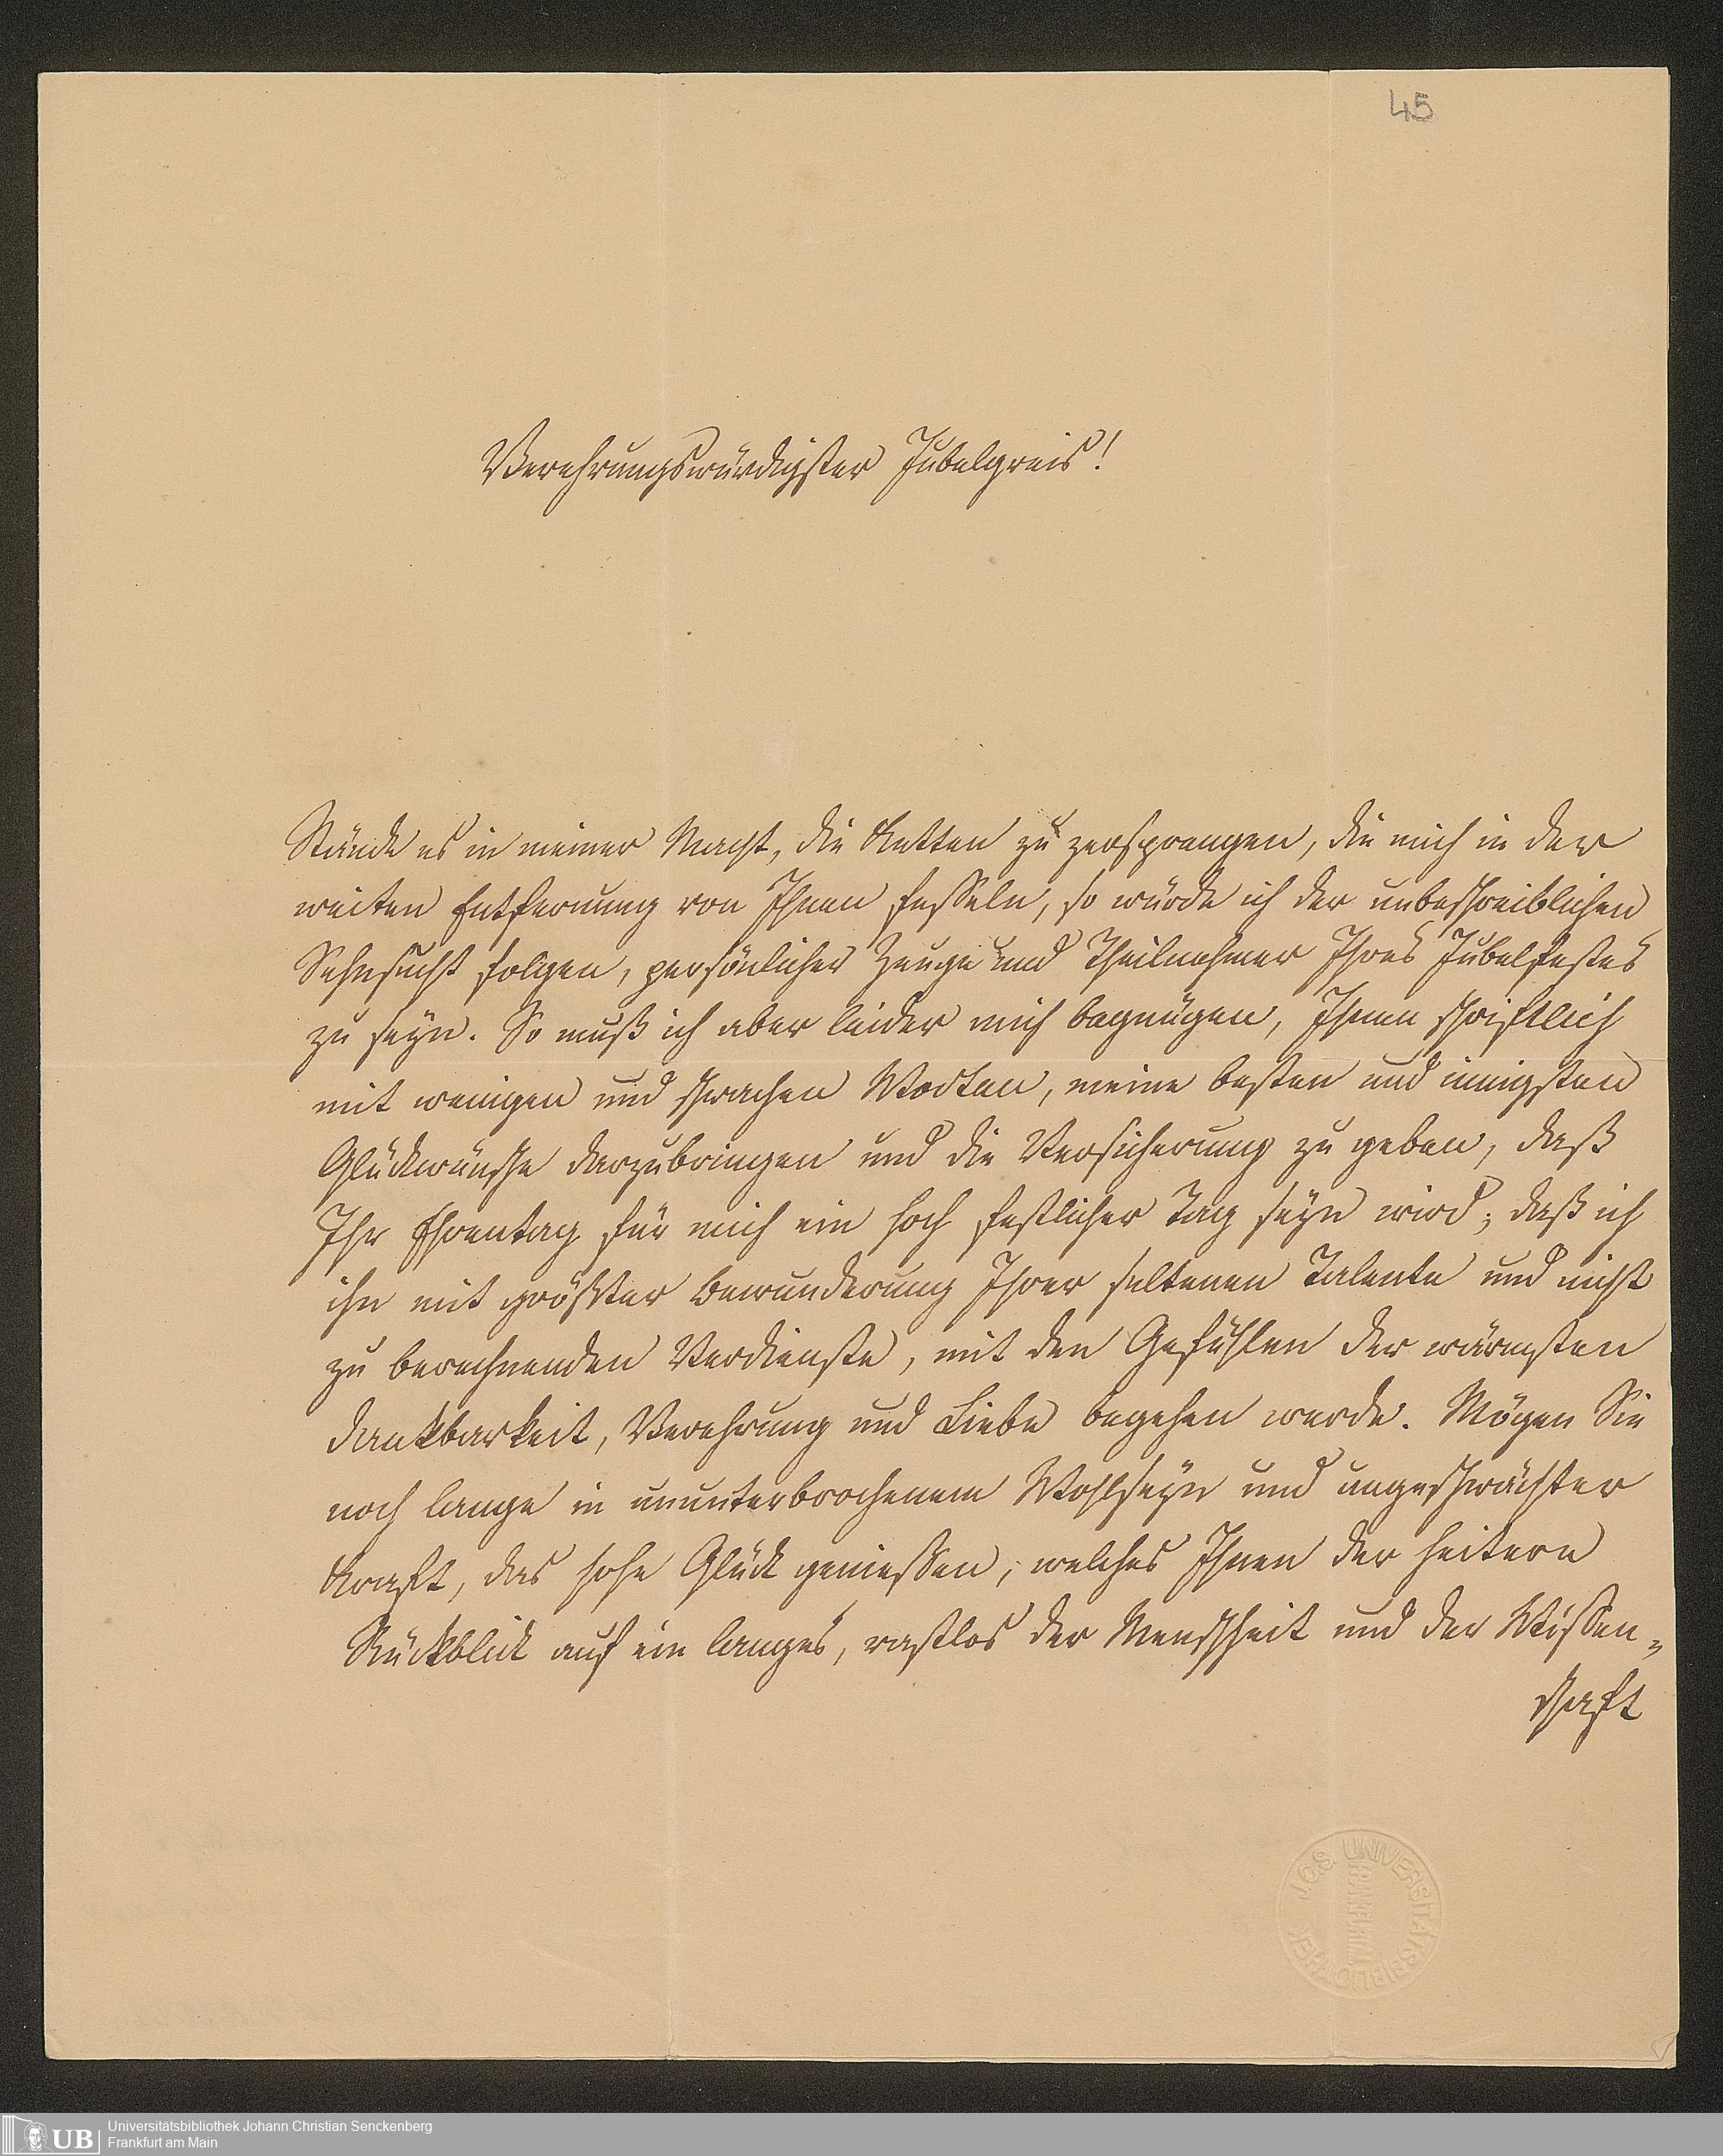 45
Verehrungswürdigster Jubelgreis!
Stände es in meiner Macht, die Ketten zu zersprengen, die mich in der
weiten Entfernung von Ihnen fesseln, so würde ich der unbeschreiblichen
Sehnsucht folgen, persönlicher Zeuge und Theilnehmer Ihres Jubelfestes
zu seyn. So muß ich aber leider mich begnügen, Ihnen schriftlich
mit wenigen und schwachen Worten, meine besten und innigsten
Glückwünsche darzubringen und die Versicherung zu geben, daß
Ihr Ehrentag für mich ein hoch festlicher Tag seyn wird; daß ich
ihn mit größter Bewunderung Ihrer seltenen Talente und nicht
zu berechnenden Verdienste, mit den Gefühlen der wärmsten
Dankbarkeit, Verehrung und Liebe begehen werde. Mögen Sie
noch lange in ununterbrochenem Wohlseyn und ungeschwächter
Kraft, das hohe Glück geniessen, welches Ihnen der heitere
Rückblick auf ein langes, rastlos der Menschheit und der Wissen„
schaft
J.C.S. UNIVERSITÄTSBIBLIOTHEK
FRANKFURT
UB
Universitätsbibliothek Johann Christian Senckenberg
Frankfurt am Main